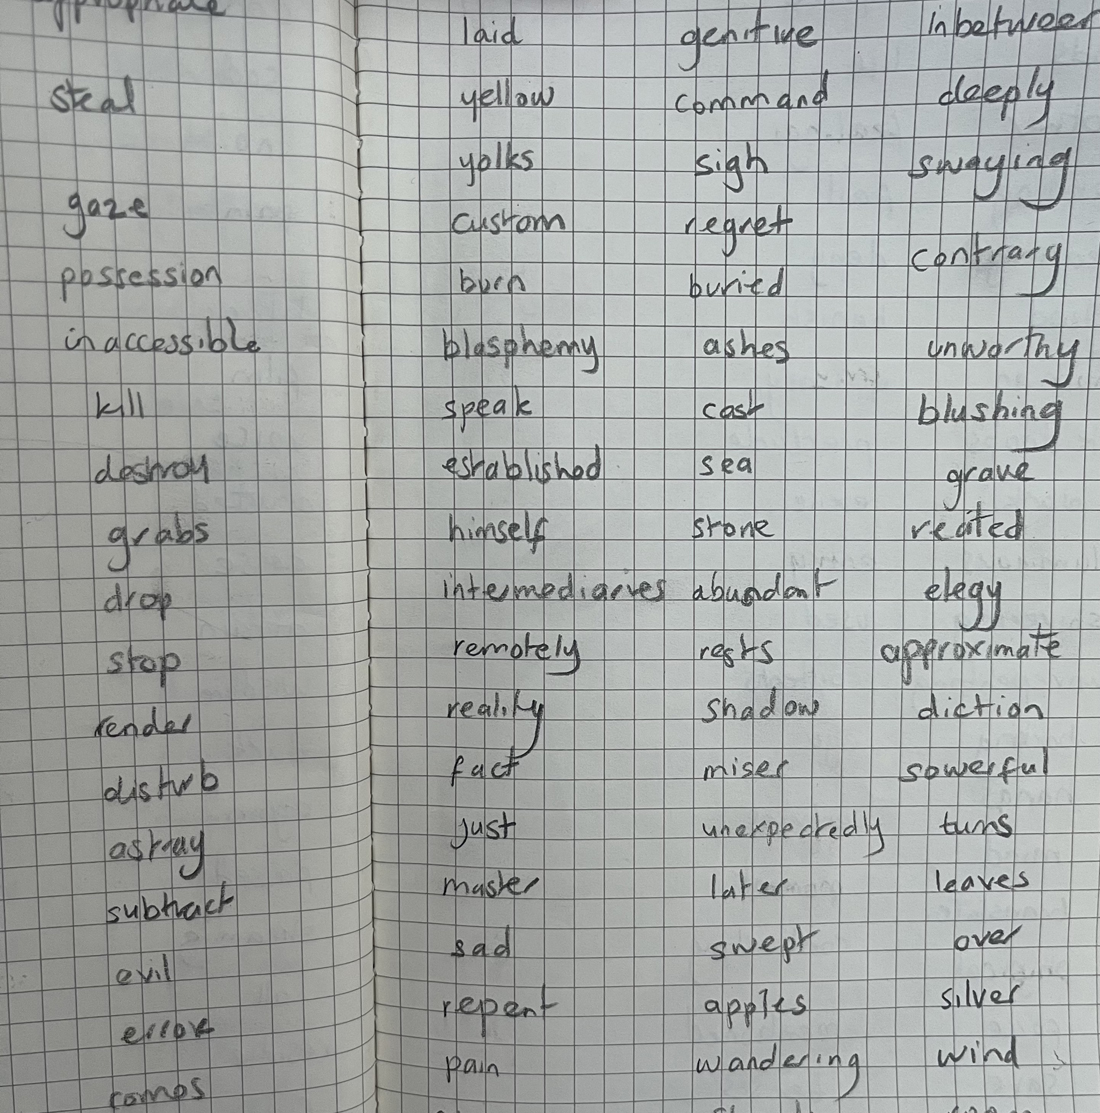 steal
gaze
possession
inaccessible
kill
destroy
grabs
drop
stop
render
disturb
astray
subtract
evil
error
laid genitive inbetween
yellow command deeply
yolks sigh swaying
custom regret contrary
burn buried
blasphemy ashes unworthy
speak cast blushing
established sea grave
himself stone
intermediaries abundant elegy
remotely rests approximate
reality shadow diction
fact miser sowerful
just unexpectedly turns
master later leaves
sad swept over
repent apples silver
pain wandering wind